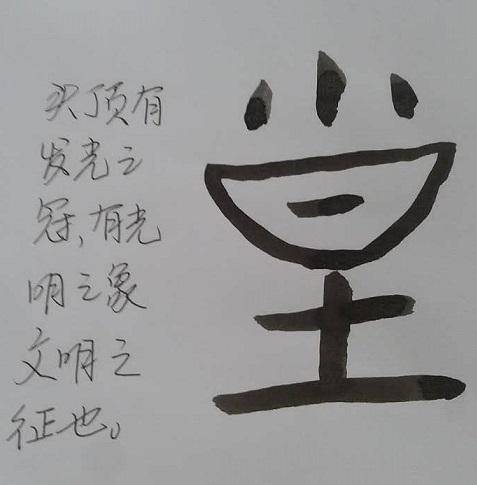 头顶有
发光之
冠、有光
明之象
文明之
征也。